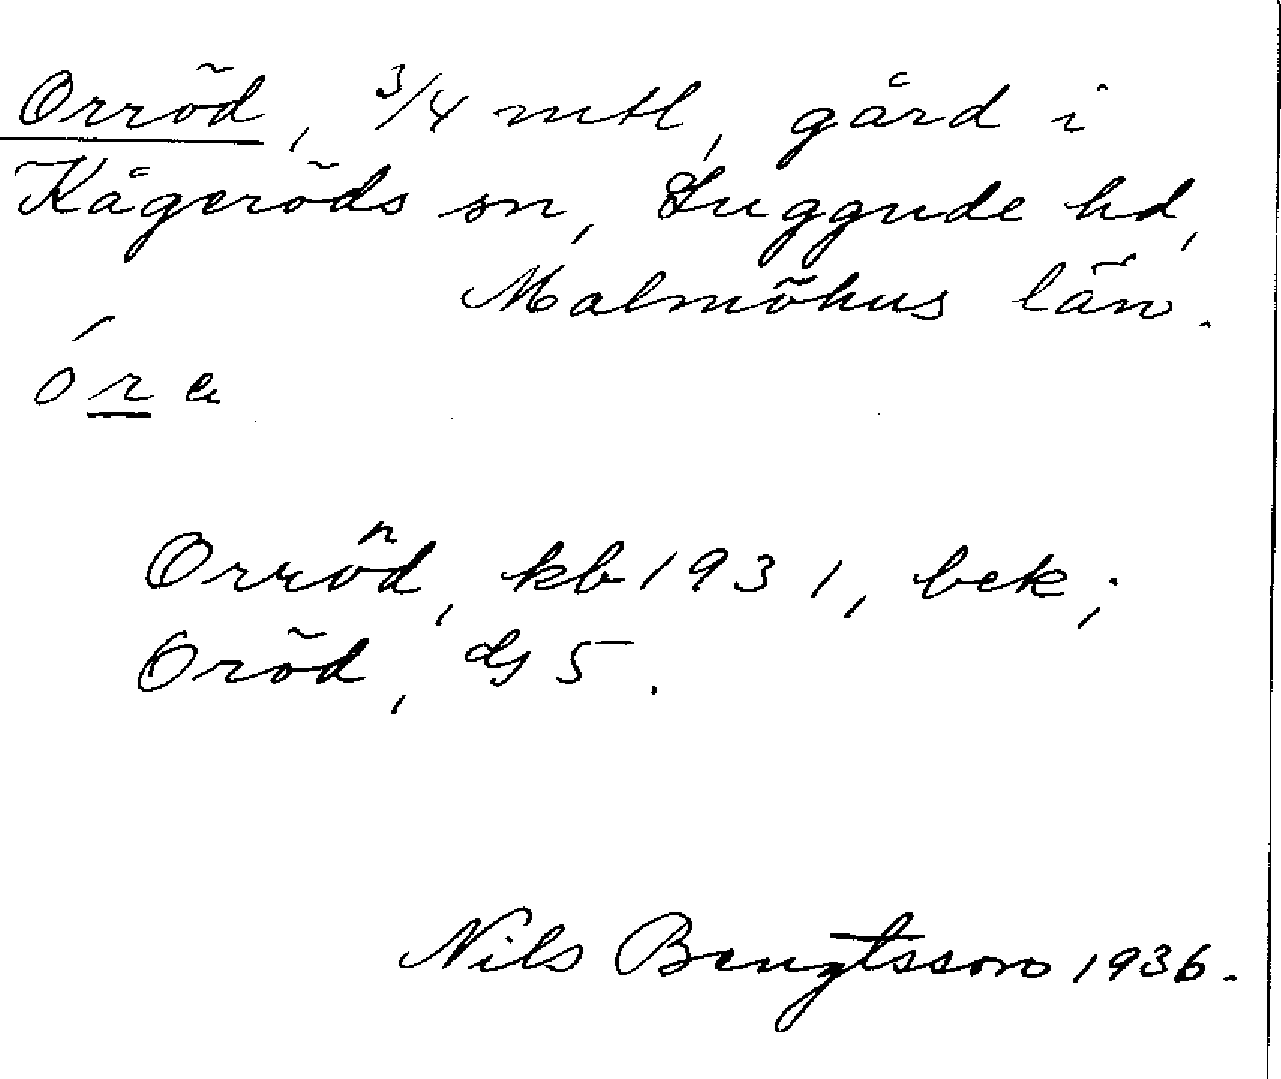 Orröd, 3/4 mtl, gård i
Kågeröds sn, Luggude hd,
Malmöhus län.
óra
Orröd, kb 1931, bek;
Oröd, GS 5.
Nils Bengtsson 1936.